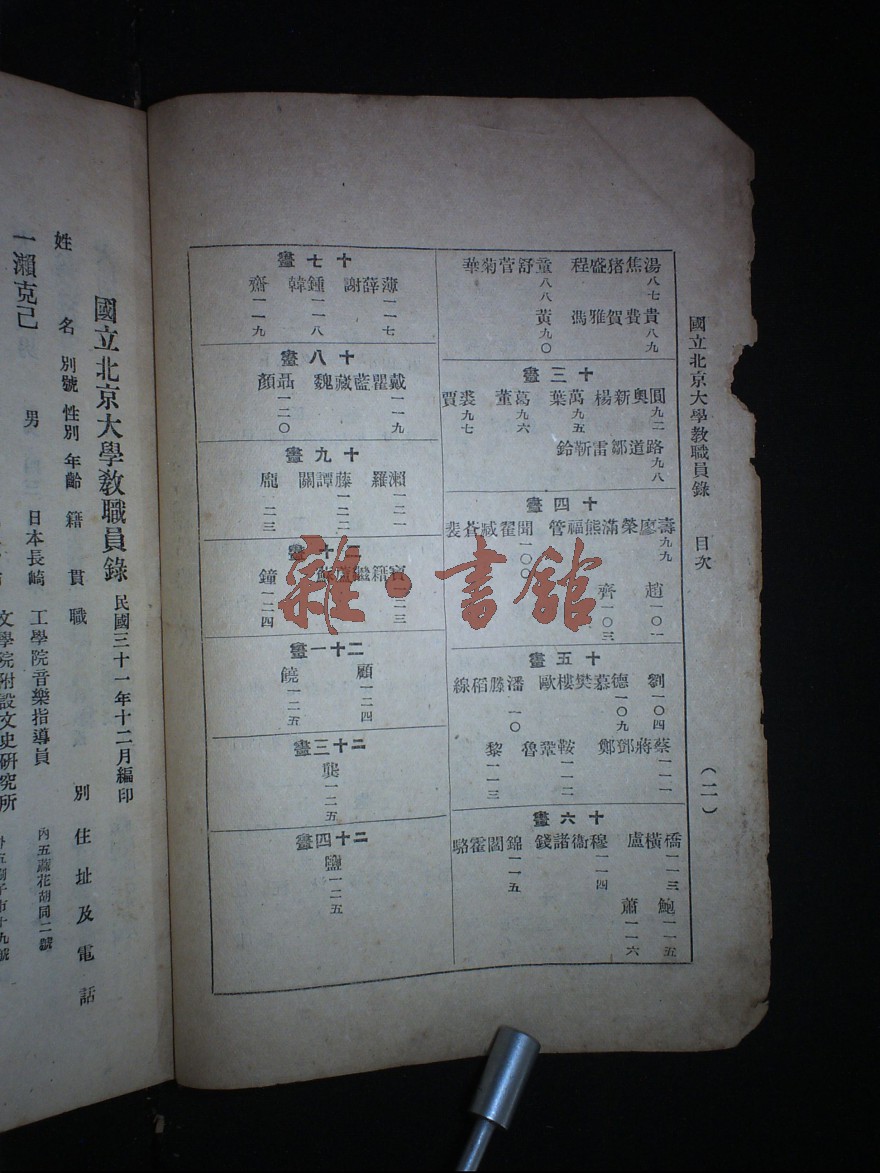 國立北京大學教職員錄 目次 (二)
湯焦猪盛程 童舒菅菊華
八七 八八
貴費賀雅馮 黃
八九 九〇
十三畫
圓奧新楊 萬葉 葛董 裘賈
九二 九五 九六 九七
路道鄒雷靳鈴
九八
十四畫
壽廖榮滿熊福管 聞翟臧蒼裴
九九 一〇〇
趙 齊
一〇一 一〇三
十五畫
劉 德慕樊樓歐 潘滕稻線
一〇四 一〇九 一一〇
蔡蔣鄧鄭 鞍鞏魯 黎
一一一 一一二 一一三
十六畫
橋橫盧 穆衞諸錢 錦閻霍駱
一一三 一一四 一一五
鮑 蕭
一一五 一一六
十七畫
薄薛謝 鍾韓 齋
一一七 一一八 一一九
十八畫
戴瞿藍藏魏 聶顏
一一九 一二〇
十九畫
瀨羅 藤譚關 龐
一二一 一二二 一二三
二十畫
寶籍繼 蘇 鐘
一二三 一二四
二十一畫
顧 饒
一二四 一二五
二十三畫
龔
一二五
二十四畫
鹽
一二五
國立北京大學教職員錄 民國三十一年十二月編印
姓名 別號 性別 年齡 籍貫 職別 住址及電話
一瀨克己 男 日本長崎 工學院音樂指導員 內五蔴花胡同二號
文學院附設文史研究所
雜·書館